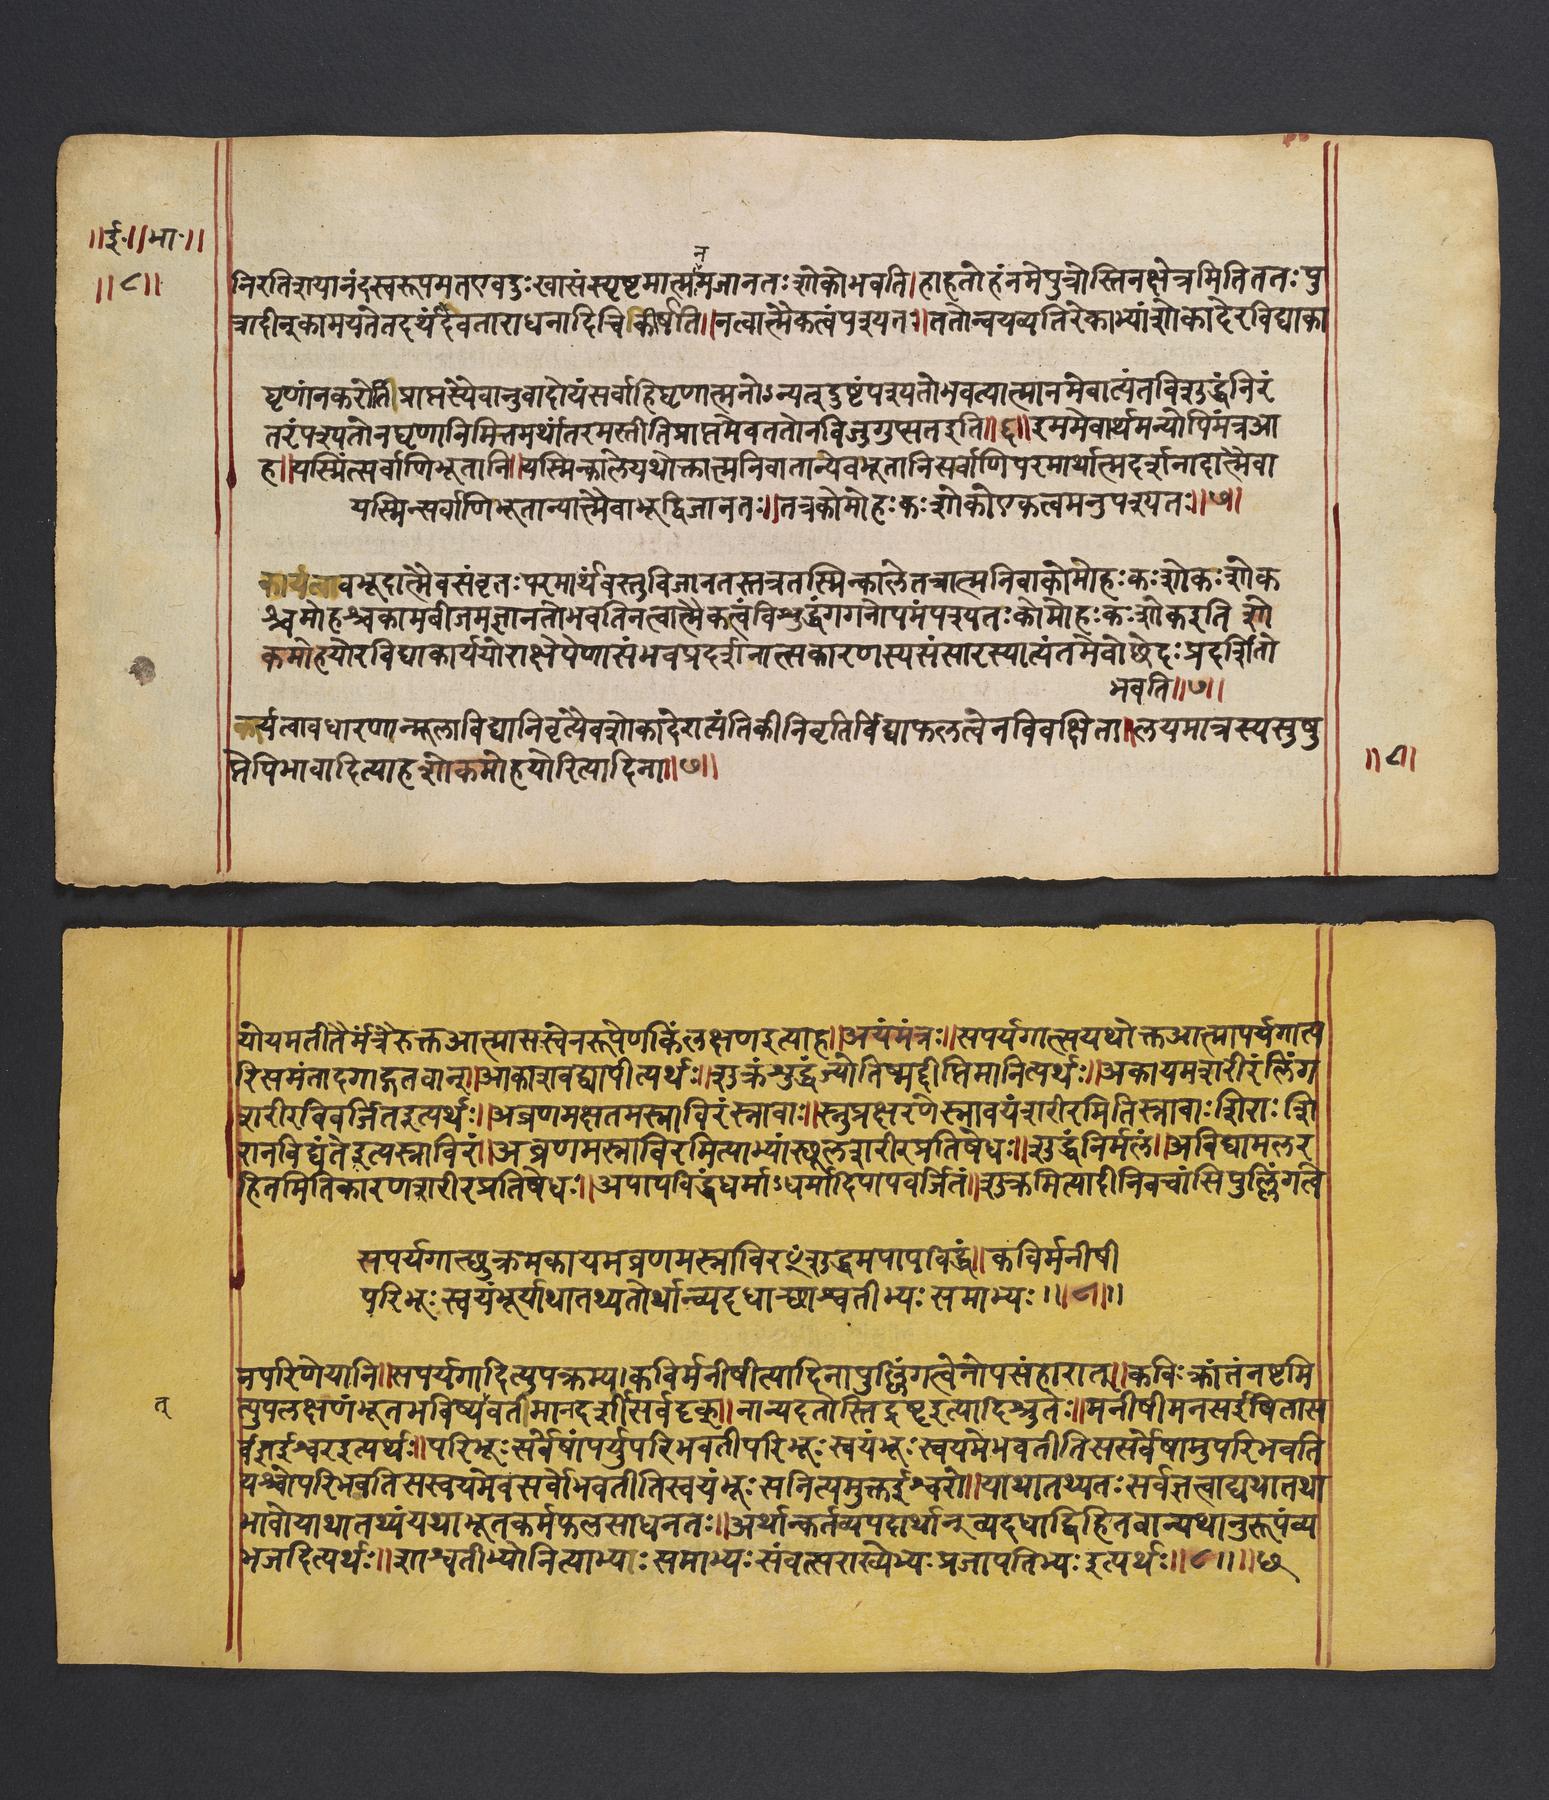 ॥ई॰॥भा॰॥
॥८॥
न
निरतिशयानंदस्वरूपमतएवदुःखासंस्पृष्टमात्ममजानतःशोकोभवति।हाहतोहंनमेपुत्रोस्तिनक्षेत्रमितिततःपु
त्रादीन्कामयतेतदर्थंदेवताराधनादिचिकीर्षति॥नत्वात्मैकत्वंपश्यतः॥ततोन्वयव्यतिरेकाभ्यांशोकादेरविद्याका
घृणांनकरोतीप्राप्तस्यैवानुवादोयंसर्वाहिघृणात्मनोऽन्यत्दुष्टंपश्यतोभवत्यात्मानमेवात्यंतविशुद्धंनिरं
तरंपश्यतोनघृणानिमित्तमर्थांतरमस्तीतिप्राप्तमेवततोनविजुगुप्सतइति॥६॥इममेवार्थमन्योपिमंत्रआ
ह॥यस्मिंत्सर्वाणिभूतानि॥यस्मिन्कालेयथोक्तात्मनिवातान्येवभूतानिसर्वाणिपरमार्थात्मदर्शनादात्मैवा
यस्मिन्सर्वाणिभूतान्यात्मैवाभूद्विजानतः॥तत्रकोमोहःकःशोकोएकत्वमनुपश्यतः॥७॥
कार्यत्वावभूदात्मैवसंवृतःपरमार्थवस्तुविजानतस्तत्रतस्मिन्कालेतत्रात्मनिवाकोमोहःकःशोकःशोक
श्चमोहश्चकामबीजमज्ञानतोभवतिनत्वात्मैकत्वंविशुद्धंगगनोपमंपश्यतःकोमोहःकःशोकइति शो
कमोहयोरविद्याकार्ययोराक्षेपेणासंभवप्रदर्शनात्सकारणस्यसंसारस्यात्यंतमेवोछेदःप्रदर्शितो
भवति॥७॥
कार्यत्वावधारणान्मूलाविद्यानिवृत्यैवशोकादेरात्यंतिकीनिवृतिर्विद्याफलत्वेनविवक्षिता॥लयमात्रस्यसुषु
प्तेपिभावादित्याहशोकमोहयोरित्यादिना॥७॥
॥८॥
योयमतीतैर्मंत्रैरुक्तआत्मासस्वेनरूपेणकिंलक्षणइत्याह॥अयंमंत्रः॥सपर्यगात्सयथोक्तआत्मापर्यगात्प
रिसमंतादगाद्गतवान्॥आकाशवद्व्यापीत्यर्थः॥शुक्रंशुद्धंज्योतिष्मद्दीप्तिमानित्यर्थः॥अकायमशरीरंलिंग
शरीरविवर्जितइत्यर्थः॥अव्रणमक्षतमस्नाविरंस्नावाः॥स्नुप्रक्षरणेस्नावयंशरीरमितिस्नावाःशिराः शि
रानविद्यंतेइत्यस्नाविरं॥अव्रणमस्नाविरमित्याभ्यांस्थूलशरीरप्रतिषेधः॥शुद्धंनिर्मलं॥अविद्यामलर
हितमितिकारणशरीरप्रतिषेधः॥अपापविद्धंधर्माऽधर्मादिपापवर्जितं॥शुक्रमित्यादीनिवचांसिपुल्लिंगत्वे
सपर्यगाच्छुक्रमकायमव्रणमस्नाविरꣳशुद्धमपापविद्धं॥कविर्मनीषी
परिभूःस्वयंभूर्याथातथ्यतोर्थान्व्यदधाच्छाश्वतीभ्यःसमाभ्यः॥८॥
नपरिणेयानि॥सपर्यगादित्युपक्रम्य।कविर्मनीषीत्यादिनापुल्लिंगत्वेनोपसंहारात्॥कविःक्रांतंनष्टमि
त्युपलक्षणंभूतभविष्यवर्तीमानदर्शीसर्वदृक्॥नान्यदतोस्तिद्रष्टृइत्यादिश्रुतेः॥मनीषीमनसईषितास
त्
र्वज्ञईश्वरइत्यर्थः॥परिभूःसर्वेषांपर्युपरिभवतीपरिभूःस्वयंभूःस्वयमेभवतीतिससर्वेषामुपरिभवति
यश्चोपरिभवतिसस्वयमेवसर्वोभवतीतिस्वयंभूःसनित्यमुक्तईश्वरो॥याथातथ्यतःसर्वज्ञत्वाद्यथातथा
भावोयाथातथ्यंयथाभूतकर्मफलसाधनतः॥अर्थान्कर्तव्यपदार्थान्व्यदधाद्विहितवान्यथानुरूपंव्य
भजदित्यर्थः॥शाश्वतीभ्योनित्याभ्याःसमाभ्यःसंवत्सराख्येभ्यःप्रजापतिभ्यःइत्यर्थः॥८॥॥छ